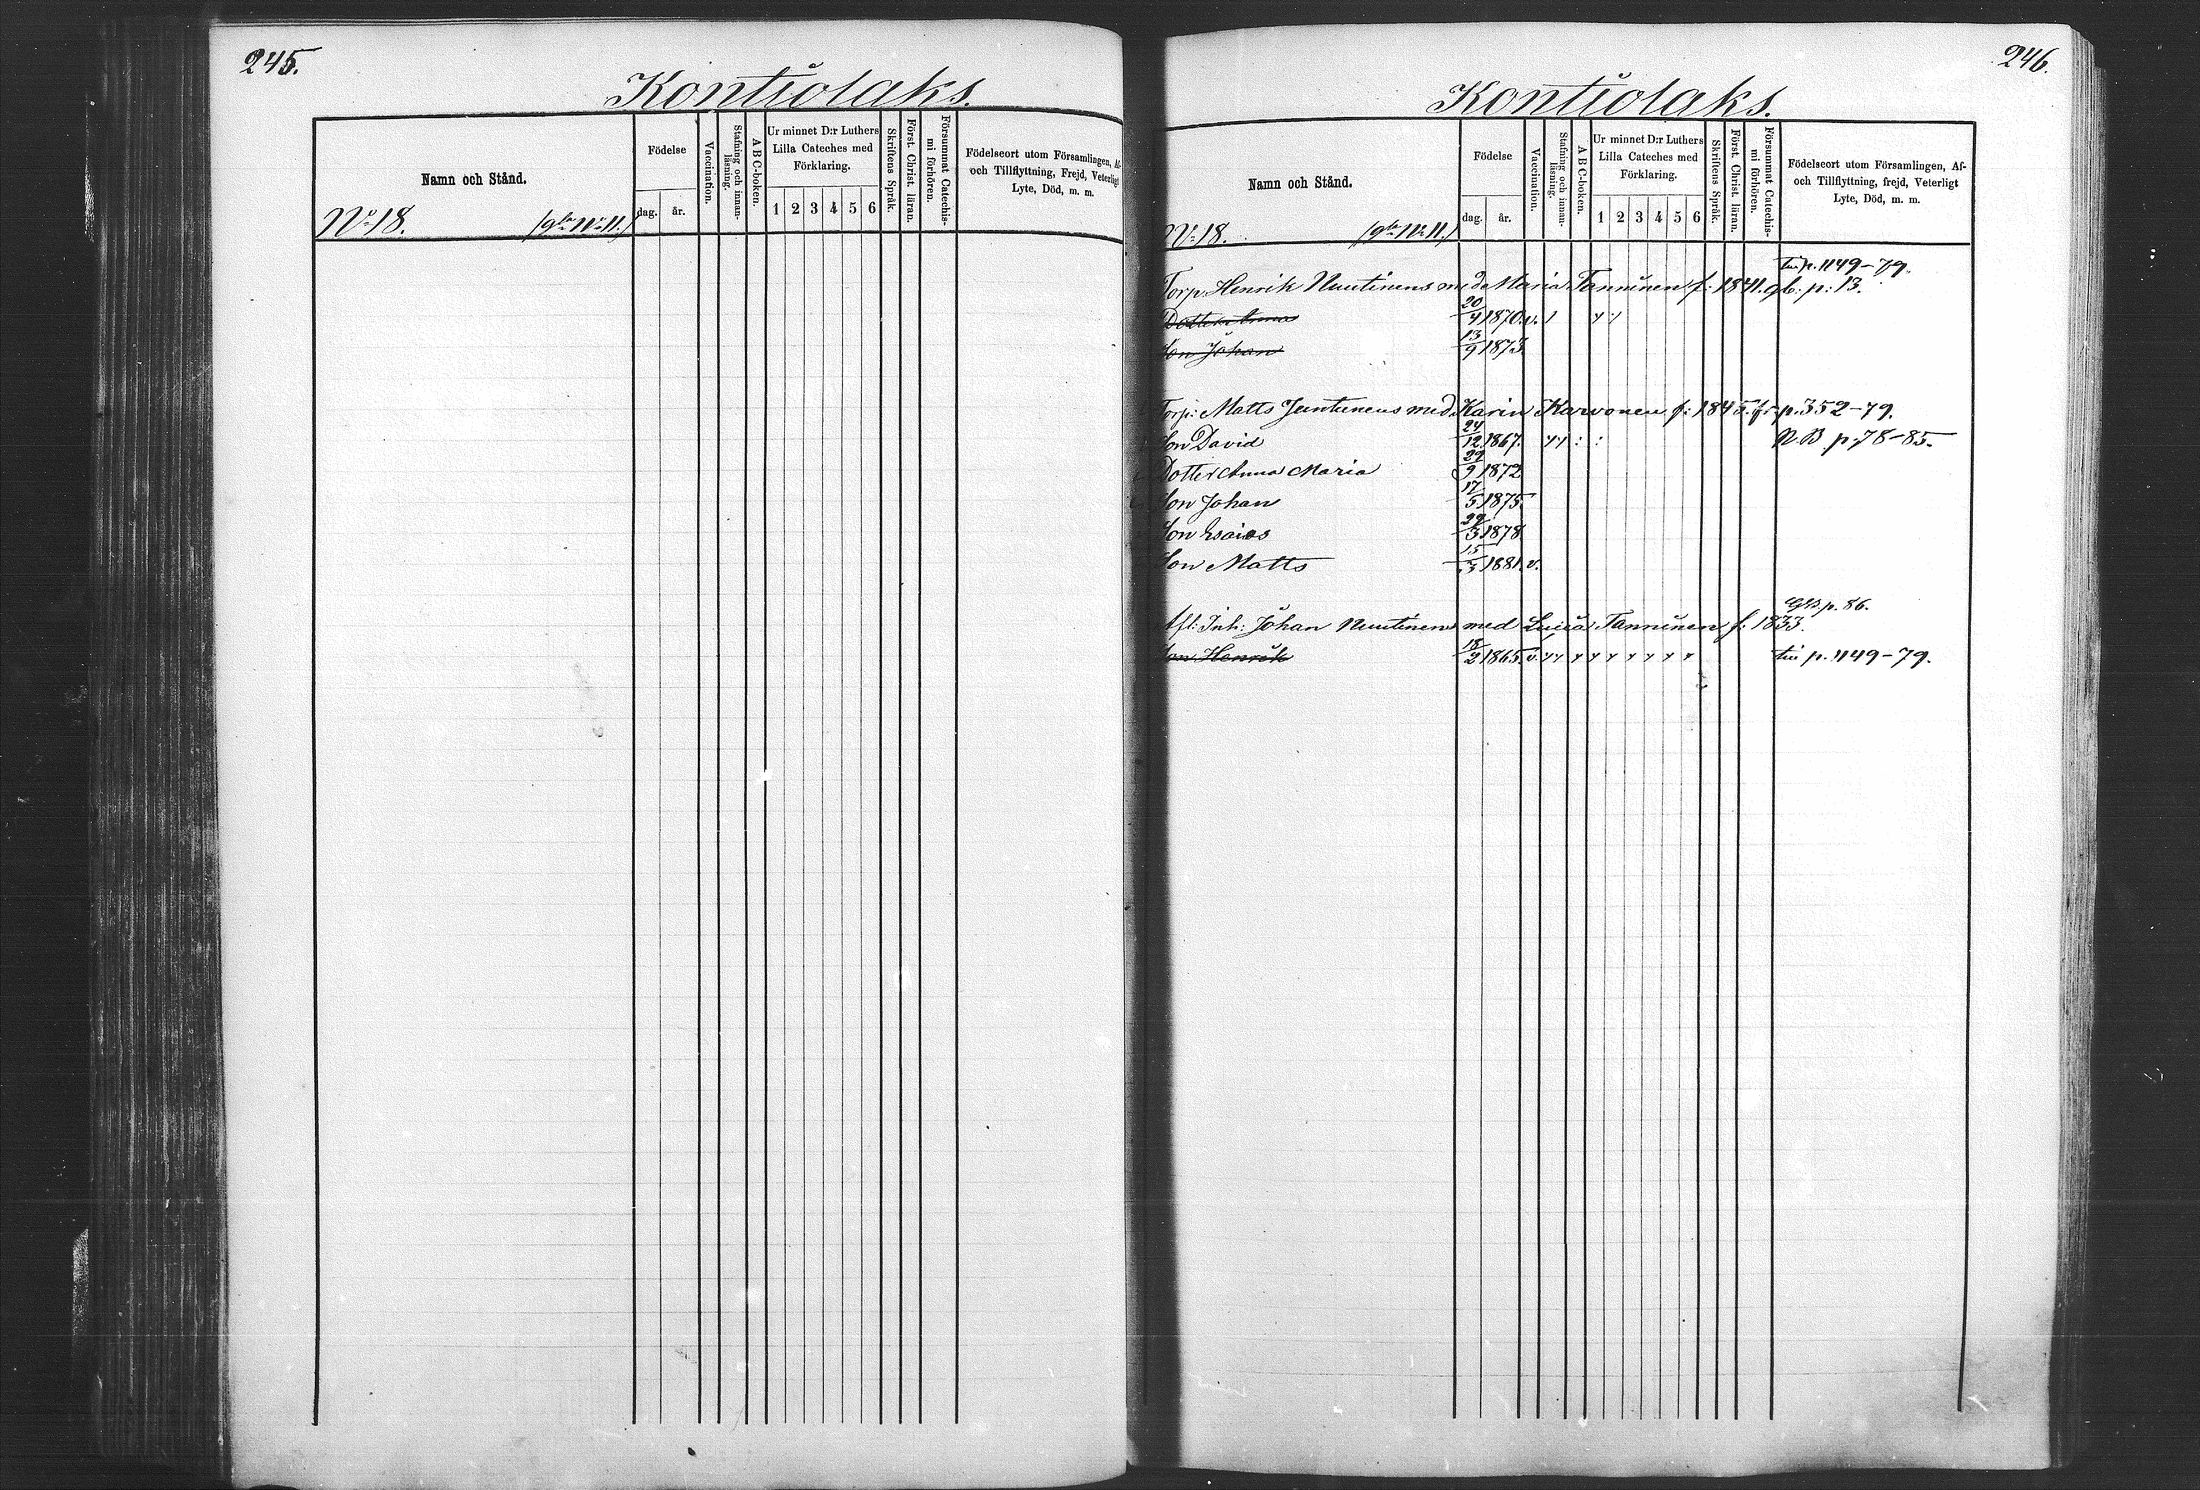 245.
Kontiolaks.
Namn och Stånd.
Födelse
dag. år.
Vaccination.
Stafning och innan-
läsning.
A B C-boken.
Ur minnet D:r Luthers
Lilla Cateches med
Förklaring.
1 2 3 4 5 6
Skriftens Språk.
Först. Christ. läran.
Försummat Catechis-
mi förhören.
Födelseort utom Församlingen, Af-
och Tillflyttning, Frejd, Veterligt
Lyte, Död, m. m.
No 18. (gla No 11.)
246.
Kontiolaks.
Namn och Stånd.
Födelse
dag. år.
Vaccination.
Stafning och innan-
läsning.
A B C-boken.
Ur minnet D:r Luthers
Lilla Cateches med
Förklaring.
1 2 3 4 5 6
Skriftens Språk.
Först. Christ. läran.
Försummat Catechis-
mi förhören.
Födelseort utom Församlingen, Af-
och Tillflyttning, frejd, Veterligt
Lyte, Död, m. m.
No 18. (gla No 11.)
p. 1149-79.
Torp: Henrik Nuutinens med Maria Tanninen f: 1841. gb: p: 13.
Dotter Anna 20/4 1870. v.
Son Johan 13/9 1873.
Torp: Matts Jeuntunens med Karin Karvonen f: 1845. fr. p. 352-79.
Son David 24/12 1867. N.B. p. 78-85.
Dotter Anna Maria 29/9 1872
Son Johan 17/5 1875.
Son Esaias 29/3 1878
Son Matts 15/3 1881. v.
GB. p. 86.
Afl: Inh: Johan Nuutinens med Luisa Tanninen f: 1833.
Son Henrik 18/2 1865. v. p. 1149-79.